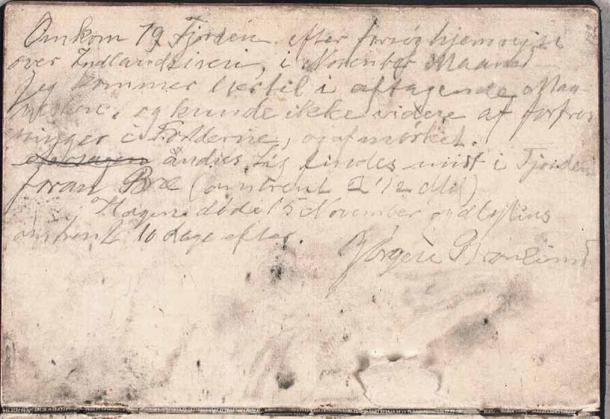 Omkom 79 Fjorden efter forsøg hjemrejse
over Indlandsisen, i November Maaned
Jeg kommer hertil i aftagende Maa-
neskin, og kunde ikke videre af forfros-
ninger i Fødderne, og af mørket.
andres Lig findes midt i Fjorden
foran Bræ (omtrent 2 1/2 Mil)
Hagen døde 15 November og
omtrent 10 dage efter.
Jørgen Brønlund